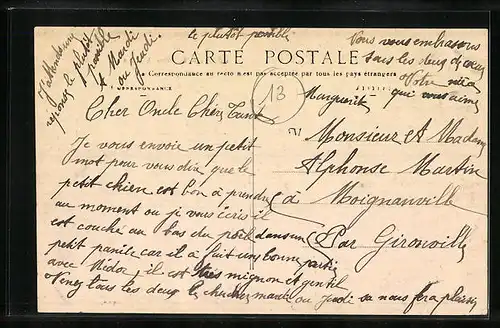 le plutôt possible
J'attends une
reponse le plutôt
possible
Mardi
ou Jeudi.
Vous vous embrassons
tous les deux de cœur
Votre nièce
qui vous aime
Marguerite
CARTE POSTALE
Correspondance au recto n'est pas acceptée par tous les pays étrangers
CORRESPONDANCE
13
Cher Oncle Chère Tante
Je vous envoie un petit
mot pour vous dire que le
petit chien est bon à prendre
au moment ou je vous écris il
est couché au bas du poêle dans un
petit panier car il a fait une bonne partie
avec Médor, il est très mignon et gentil
Venez tous les deux le chercher mardi ou Jeudi sa nous fera plaisir
Monsieur et Madame
Alphonse Martin
à Moignanville
Par Gironville